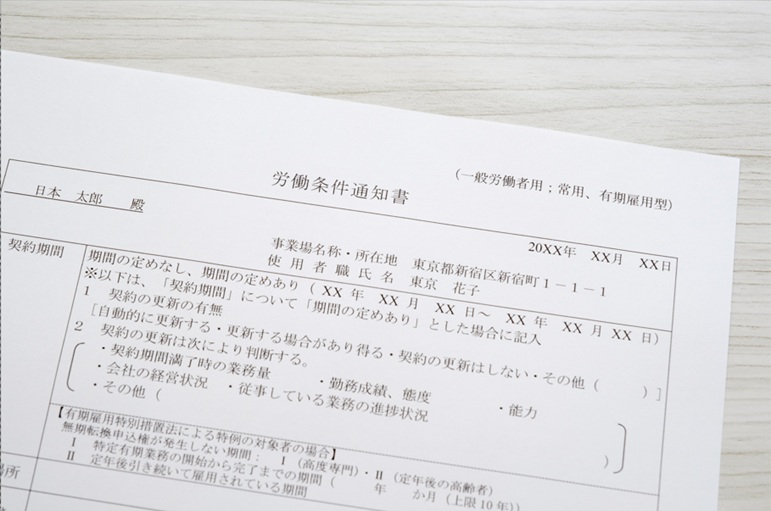 労働条件通知書
(一般労働者用；常用、有期雇用型)
20XX年 XX月 XX日
日本 太郎 殿
事業場名称・所在地 東京都新宿区新宿町１－１－１
使用者職氏名 東京 花子
契約期間
期間の定めなし、期間の定めあり ( XX 年 XX 月 XX 日～ XX 年 XX 月 XX 日)
※以下は、「契約期間」について「期間の定めあり」とした場合に記入
1 契約の更新の有無
［自動的に更新する・更新する場合があり得る・契約の更新はしない・その他 ( )］
2 契約の更新は次により判断する。
・契約期間満了時の業務量 ・勤務成績、態度 ・能力
・会社の経営状況 ・従事している業務の進捗状況
・その他 ( )
【有期雇用特別措置法による特例の対象者の場合】
無期転換申込権が発生しない期間： Ⅰ (高度専門)・Ⅱ (定年後の高齢者)
Ⅰ 特定有期業務の開始から完了までの期間 ( 年 か月 (上限10年))
Ⅱ 定年後引き続いて雇用されている期間
場所